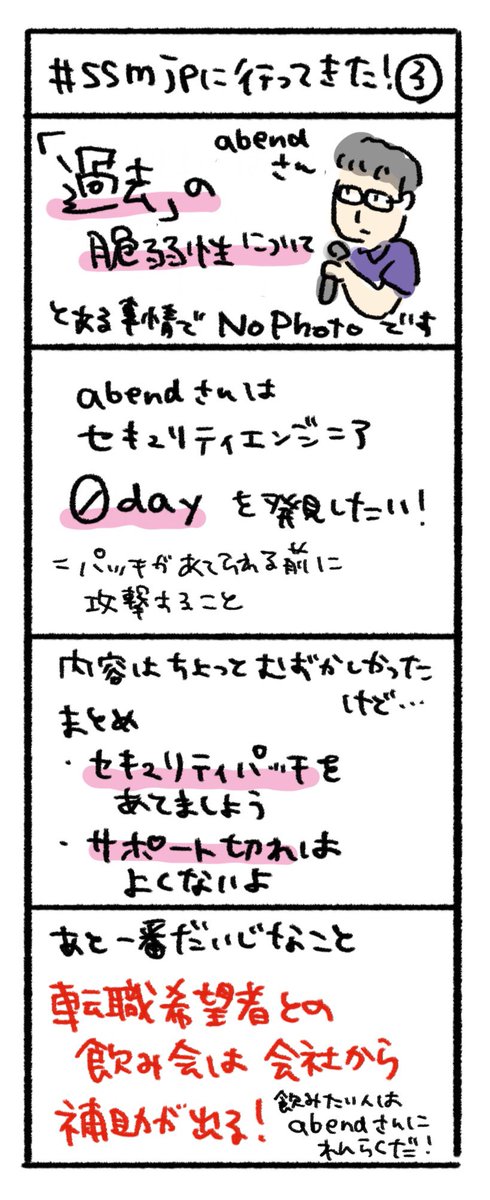 #ssmjpに行ってきた!③
abend
さん
「過去」の
脆弱性について
とある事情で No Photo です
abendさんは
セキュリティエンジニア
0day を発見したい!
=パッチがあてられる前に
攻撃すること
内容はちょっとむずかしかった
けど…
まとめ
・セキュリティパッチを
あてましょう
・サポート切れは
よくないよ
あと一番だいじなこと
転職希望者との
飲み会は 会社から
補助が出る!
飲みたい人は
abendさんに
れんらくだ!